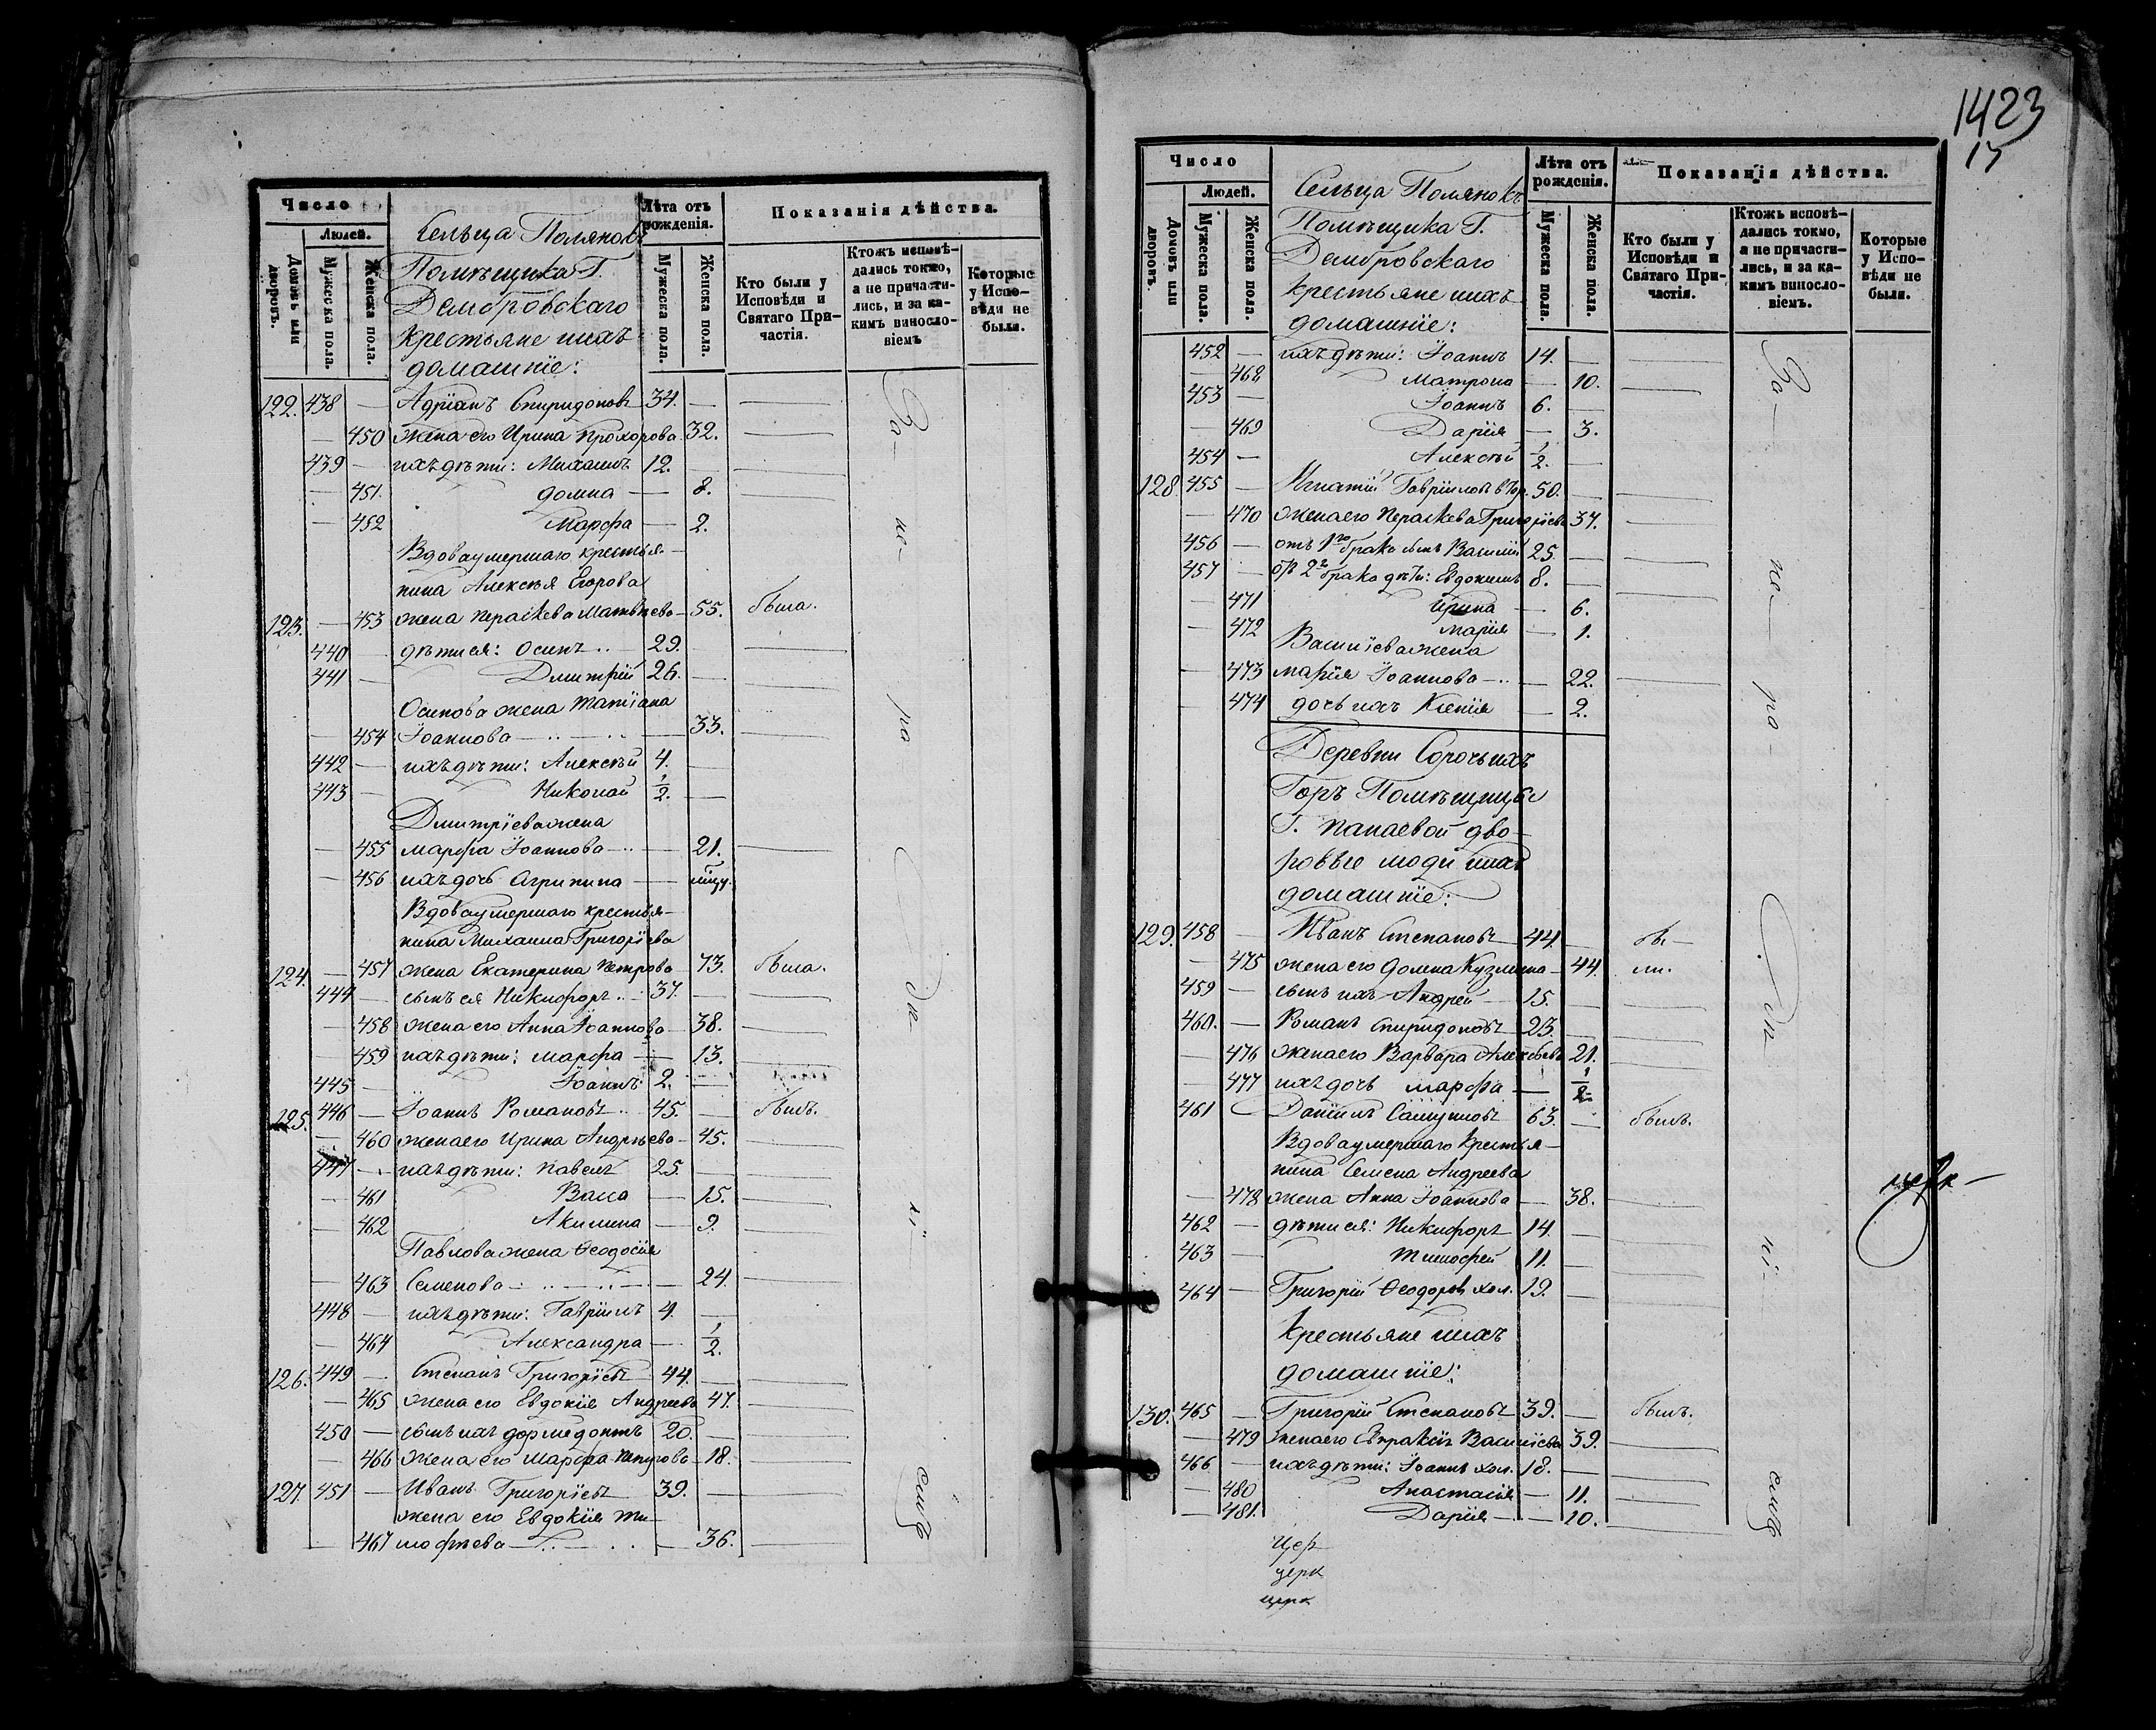 Число
Людей.
Домовъ или дворовъ.
Мужеска пола.
Женска пола.
Сельца Полянокъ
Помѣщика Г.
Дембровскаго
крестьяне и ихъ
домашніе:
Лѣта отъ рожденія.
Мужеска пола.
Женска пола.
Показанія дѣйства.
Кто были у Исповѣди и Святаго Причастія.
Ктожъ исповѣдались токмо, а не причастились, и за какимъ винословіемъ
Которые у Исповѣди не были.
122. 438 — Адріанъ Спиридоновъ 34. —
— 450 жена его Ирина Прохорова 32.
439 — ихъ дѣти: Михаилъ 12. —
— 451. Домна — 8.
— 452 Марѳа — 2.
Вдова умершаго крестья-
нина Алексѣя Егорова
123. — 453 жена Параскева Матвѣева — 55. была.
440 — дѣти ея: Осипъ .. — 29.
441 — Дмитрій 26. —
Осипова жена Татіана
— 454 Іоаннова — .. — .. — 33.
442 — ихъ дѣти: Алексѣй 4. —
443 — Николай 1/2. —
Дмитріева жена
— 455 Марѳа Іоаннова — .. — 21.
— 456 ихъ дочь Агрипина —
Вдова умершаго крестья-
нина Михаила Григоріева
124. — 457 жена Екатерина Петрова — 73. была.
444 — сынъ ея Никифоръ .. — 37. —
— 458 жена его Анна Іоаннова — 38.
— 459 ихъ дѣти: Марѳа — 13.
445 — Іоаннъ 2. —
125. 446 — Іоаннъ Романовъ .. 45. — былъ.
— 460 жена его Ирина Андреева — 45.
447 — ихъ дѣти: Павелъ 25. —
— 461 Васса — 15.
— 462 Акилина — 9.
Павлова жена Ѳеодосія
— 463 Семенова — .. — .. — 24.
448 — ихъ дѣти: Гавріилъ 4. —
— 464 Александра — 1/2.
126. 449 — Степанъ Григорьевъ 44. —
— 465 жена его Евдокія Андреева 47.
450 — сынъ ихъ Дормедонтъ 20. —
— 466 жена его Марѳа 18.
127. 451 — Иванъ Григорьевъ 39. —
жена его Евдокія Ти-
— 467 моѳеева — .. — .. — 36.
За
не
ра
дѣ
ні
емъ
1423
17
Число
Людей.
Домовъ или дворовъ.
Мужеска пола.
Женска пола.
Сельца Полянокъ
Помѣщика Г.
Дембровскаго
крестьяне и ихъ
домашніе:
Лѣта отъ рожденія.
Мужеска пола.
Женска пола.
Показанія дѣйства.
Кто были у Исповѣди и Святаго Причастія.
Ктожъ исповѣдались токмо, а не причастились, и за какимъ винословіемъ.
Которые у Исповѣди не были.
452 — ихъ дѣти: Іоаннъ 14. —
— 468 Матрона — 10.
453 — Іоаннъ 6. —
— 469 Дарія — 3.
454 — Алексѣй 1/2. —
128. 455 — Игнатій Гавріиловъ 50. —
— 470 жена его Параскева Григоріева 37.
456 — отъ 1го брака сынъ Василій 25. —
457 — отъ 2го брака дѣти: Евдокимъ 8. —
— 471 Ирина — 6.
— 472 Марія — 1.
Василіева жена
— 473 Марія Іоаннова — .. — 22.
— 474 дочь ихъ Ксенія — 2.
Деревни Сорочьихъ
Горъ Помѣщицы
Г. Панаевой дво-
ровые люди и ихъ
домашніе:
129. 458 — Иванъ Степановъ — 44. — бы —
— 475 жена его Домна Кузмина — 44. ли.
459 — сынъ ихъ Андрей — 15. —
460. — Романъ Спиридоновъ — 23. —
— 476 жена его Варвара Алексѣева 21.
— 477 ихъ дочь Марѳа — 1/2
461 — Даніилъ Самуиловъ 63. — былъ.
Вдова умершаго крестья-
нина Семена Андреева
— 478 жена Анна Іоаннова — 38.
462 — дѣти ея: Никифоръ 14. —
463 — Тимоѳей 11. —
464 — Григорій Ѳеодоровъ хол. 19. —
Крестьяне и ихъ
домашніе:
130. 465 — Григорій Степановъ 39. — былъ.
— 479 жена его Евпраксія Василіева 39.
466 — ихъ дѣти: Іоаннъ хол. 18. —
— 480 Анастасія — 11.
— 481. Дарія — 10.
За
не
ра
дѣ
ні
емъ
церк
Цер
церк
церк